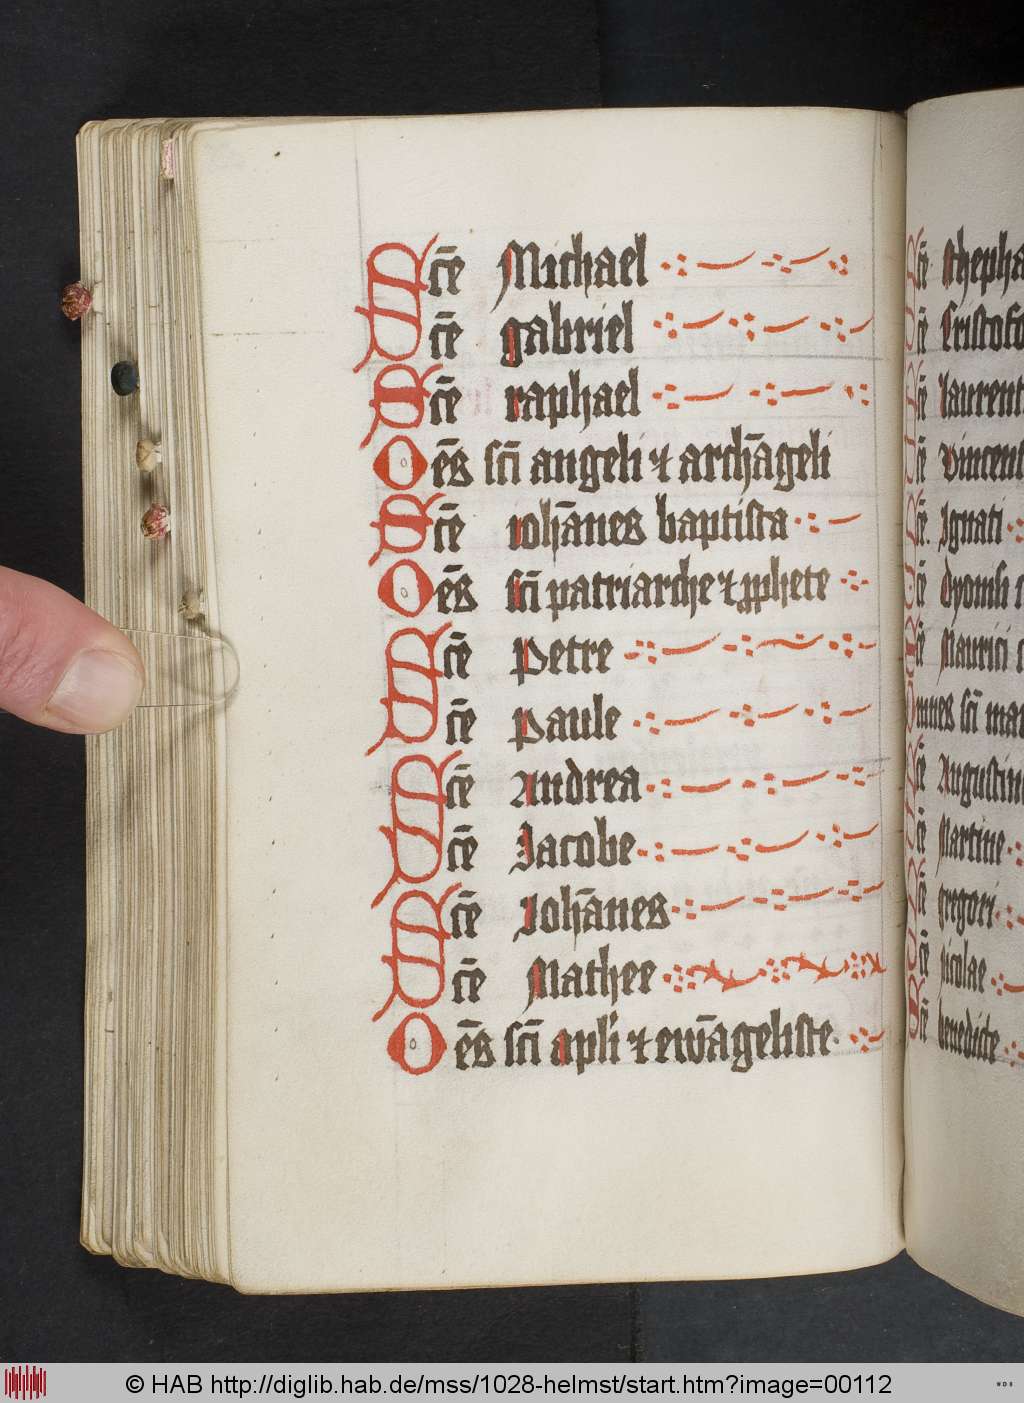 Sc̄e Michael
Sc̄e gabriel
Sc̄e raphael
Oēs sc̄i angeli ⁊ archāgeli
Sc̄e iohānes baptista
Oēs sc̄i patriarche ⁊ ꝓphete
Sc̄e Petre
Sc̄e Paule
Sc̄e Andrea
Sc̄e Jacobe
Sc̄e Johānes
Sc̄e Mathee
Oēs sc̄i apl̄i ⁊ ewāgeliste
Sc̄e Stepha
Sc̄e Cristofo
Sc̄e laurent
Sc̄e Vincent
Sc̄e Ignati
Sc̄e Dyonisi
Sc̄e Maurici
Omnes sc̄i mar
Sc̄e Augustin
Sc̄e Martine
Sc̄e gregori
Sc̄e nicolae
Sc̄e benedicte
© HAB http://diglib.hab.de/mss/1028-helmst/start.htm?image=00112